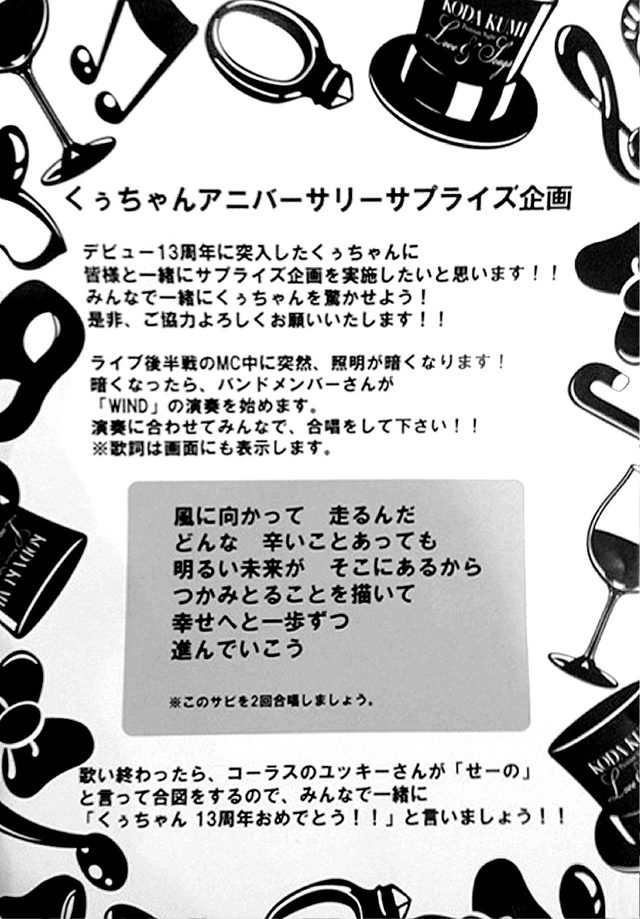 KODA KUMI
くぅちゃんアニバーサリーサプライズ企画
デビュー13周年に突入したくぅちゃんに
皆様と一緒にサプライズ企画を実施したいと思います！！
みんなで一緒にくぅちゃんを驚かせよう！
是非、ご協力よろしくお願いいたします！！
ライブ後半戦のMC中に突然、照明が暗くなります！
暗くなったら、バンドメンバーさんが
「WIND」の演奏を始めます。
演奏に合わせてみんなで、合唱をして下さい！！
※歌詞は画面にも表示します。
風に向かって　走るんだ
どんな　辛いことあっても
明るい未来が　そこにあるから
つかみとることを描いて
幸せへと一歩ずつ
進んでいこう
※このサビを2回合唱しましょう。
KODA KUMI
KODA KUMI
歌い終わったら、コーラスのユッキーさんが「せーの」
と言って合図をするので、みんなで一緒に
「くぅちゃん 13周年おめでとう！！」と言いましょう！！